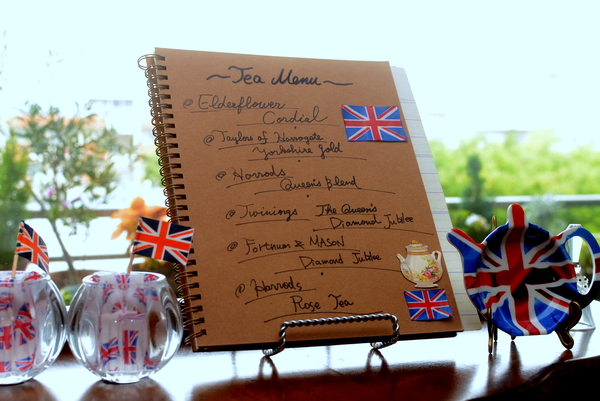 ~Tea Menu~
@ Elderflower
Cordial
@ Taylors of Harrogate
Yorkshire Gold
@ Harrods
Queen's Blend
@ Twinings The Queen's
Diamond Jubilee
@ Fortnum & MASON
Diamond Jubilee
@ Harrods
Rose Tea